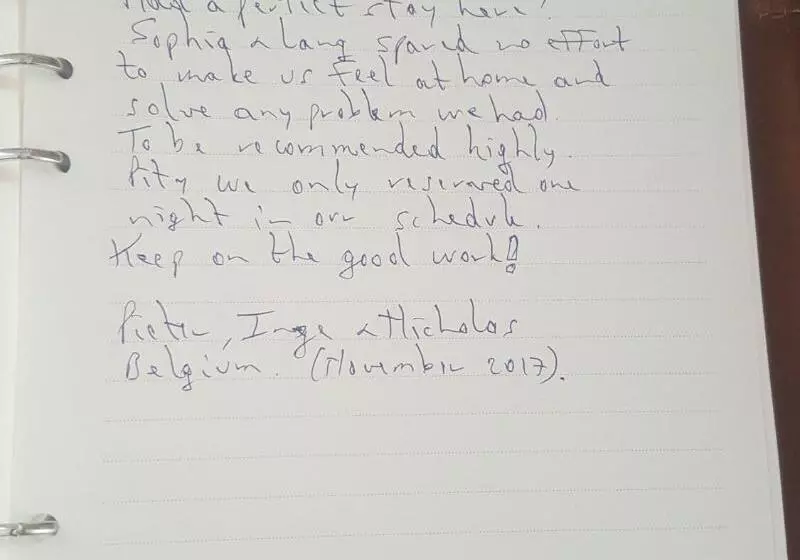 a perfect stay here!
Sophia & Lang spared no effort
to make us feel at home and
solve any problem we had.
To be recommended highly.
Pity we only reserved one
night in our schedule.
Keep on the good work!
Pieter, Inge & Nicholas
Belgium. (November 2017).